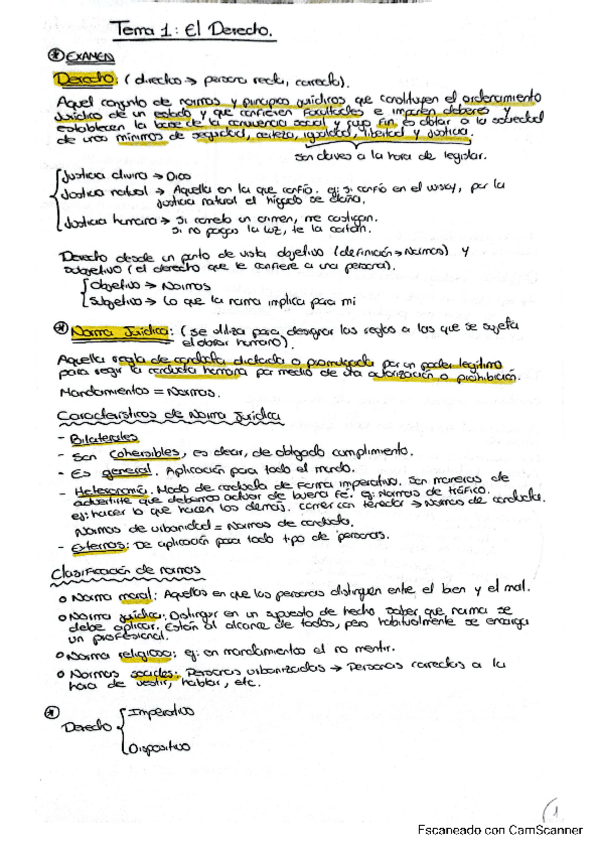 Tema 1: El Derecho.
* EXAMEN
Derecho: (directos → persona recta, correcta).
Aquel conjunto de normas y principios jurídicos que constituyen el ordenamiento
jurídico de un estado y que confieren facultades e imponen deberes y
establecen la base de la convivencia social y cuyo fin es dotar a la sociedad
de unos mínimos de seguridad, certeza, igualdad, libertad y justicia.
son claves a la hora de legislar.
Justicia divina → Dios
Justicia natural → Aquella en la que confío. ej: si confío en el wisky, por la
justicia natural el hígado se daña.
Justicia humana → Si cometo un crimen, me castigan.
Si no pagas la luz, te la cortan.
Derecho desde un punto de vista objetivo (definición → Normas) y
subjetivo (el derecho que le confiere a una persona).
Objetivo → Normas
Subjetivo → Lo que la norma implica para mi
* Norma Jurídica: (se utiliza para designar las reglas a las que se sujeta
el obrar humano).
Aquella regla de conducta dictada o promulgada por un poder legítimo
para regir la conducta humana por medio de una autorización o prohibición.
Mandamientos = Normas.
Características de Norma Jurídica
- Bilaterales
- Son cohersibles, es decir, de obligado cumplimiento.
- Es general. Aplicación para todo el mundo.
- Heteronomía: Modo de conducta de forma imperativa. Son maneras de
advertirte que debamos actuar de buena fe. ej: Normas de tráfico.
ej: hacer lo que hacen los demás. comer con tenedor → Normas de conducta.
Normas de urbanidad = Normas de conducta.
- Externas: De aplicación para todo tipo de personas.
Clasificación de normas
o Norma moral: Aquellas en que las personas distinguen entre el bien y el mal.
o Norma jurídica: Distinguir en un supuesto de hecho saber que norma se
debe aplicar. Están al alcance de todos, pero habitualmente se encarga
un profesional.
o Norma religiosa: ej: en mandamientos el no mentir.
o Normas sociales: Personas urbanizadas → Personas correctas a la
hora de vestir, hablar, etc.
*
Derecho
Imperativo
Dispositivo
1
Escaneado con CamScanner